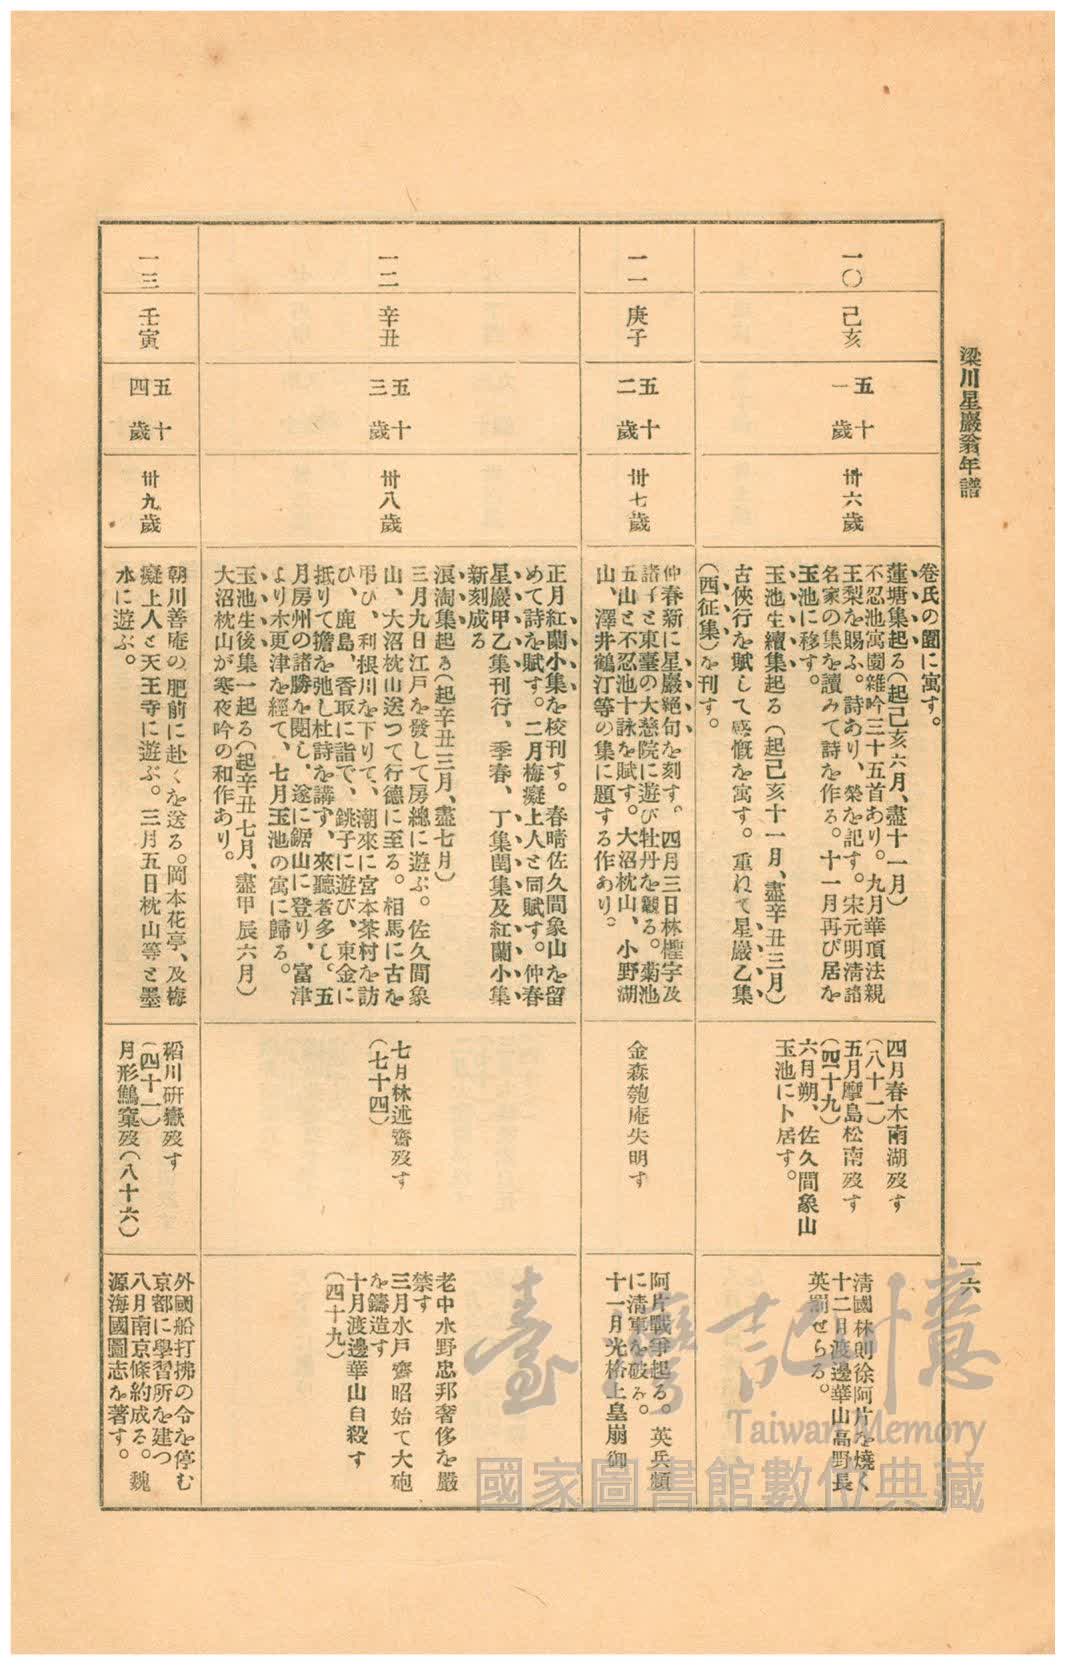 梁川星巖翁年譜
一六
一〇
己亥
五十
一歲
卅六歲
卷氏の園に寓す。
蓮塘集起る(起己亥六月、盡十一月)
不忍池寓園雜吟三十五首あり。九月華頂法親
王梨を賜ふ。詩あり、榮を記す。宋元明清諸
名家の集を讀みて詩を作る。十一月再び居を
玉池に移す。
玉池生續集起る(起己亥十一月、盡辛丑三月)
古俠行を賦して感慨を寓す。重ねて星巖乙集
(西征集)を刊す。
四月春木南湖歿す
(八十一)
五月摩島松南歿す
(四十九)
六月朔、佐久間象山
玉池に卜居す。
清國林則徐阿片を燒く
十二月渡邊華山高野長
英罰せらる。
一一
庚子
五十
二歲
卅七歲
仲春新に星巖絕句を刻す。四月三日林檉宇及
諸子と東臺の大慈院に遊び牡丹を觀る。菊池
五山と不忍池十詠を賦す。大沼枕山、小野湖
山、澤井鶴汀等の集に題する作あり。
金森匏庵失明す
阿片戰爭起る。英兵頻
に清軍を破る。
十一月光格上皇崩御
一二
辛丑
五十
三歲
卅八歲
正月紅蘭小集を校刊す。春晴佐久間象山を留
めて詩を賦す。二月梅癡上人と同賦す。仲春
星巖甲乙集刊行、季春、丁集閏集及紅蘭小集
新刻成る
浪淘集起る(起辛丑三月、盡七月)
三月九日江戸を發して房總に遊ぶ。佐久間象
山、大沼枕山送つて行德に至る。相馬に古を
弔ひ、利根川を下りて、潮來に宮本茶村を訪
ひ、鹿島、香取に詣で、銚子に遊び、東金に
抵りて擔を弛し杜詩を講ず、來聽者多し。五
月房州の諸勝を閱し、遂に鋸山に登り、富津
より木更津を經て、七月玉池の寓に歸る。
玉池生後集一起る(起辛丑七月、盡甲辰六月)
大沼枕山が寒夜吟の和作あり。
七月林述齋歿す
(七十四)
老中水野忠邦奢侈を嚴
禁す
三月水戸齊昭始て大砲
を鑄造す
十月渡邊華山自殺す
(四十九)
一三
壬寅
五十
四歲
卅九歲
朝川善庵の肥前に赴くを送る。岡本花亭、及梅
癡上人と天王寺に遊ぶ。三月五日枕山等と墨
水に遊ぶ。
稻川研嶽歿す
(四十一)
月形鷦窠歿(八十六)
外國船打拂の令を停む
京都に學習所を建つ
八月南京條約成る。魏
源海國圖志を著す。
臺灣記憶
Taiwan Memory
國家圖書館數位典藏